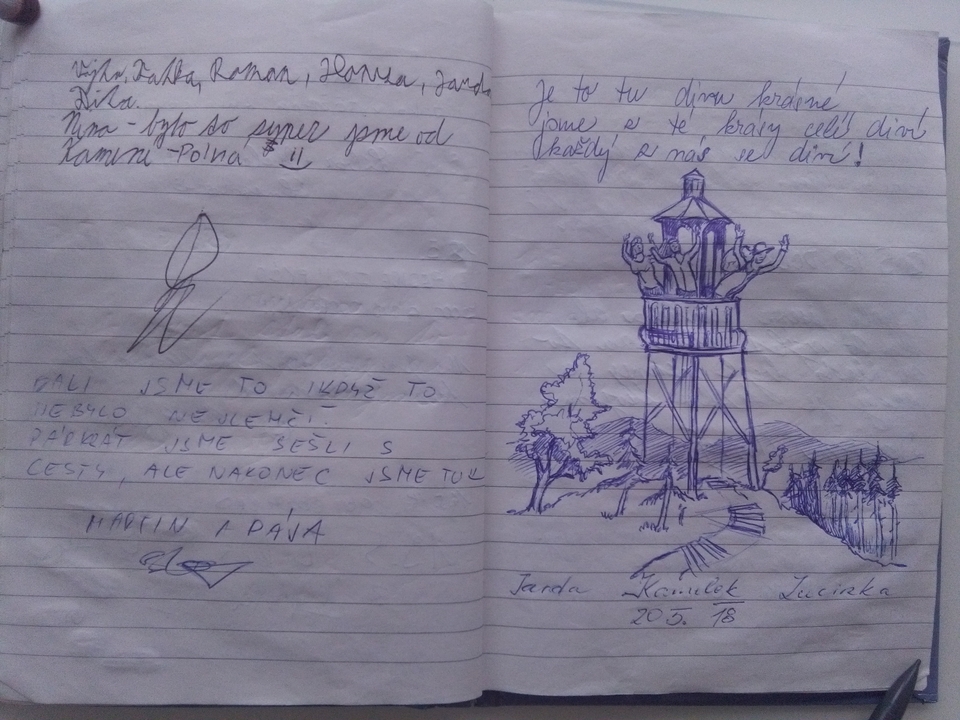 Vojta, Katka, Roman, Honza, Jarda
Nina - bylo to super jsme od
Kameni - Polná
DALI JSME TO IKDYŽ TO
NEBYLO NEJLEHČÍ.
PÁRKRÁT JSME SEŠLI S
CESTY, ALE NAKONEC JSME TU
MARTIN A PÁJA
Je to tu divu krásné
jsme z té krásy celé diví
každý z nás se diví!
Jarda Kamilek Lucinka
20.5. 18